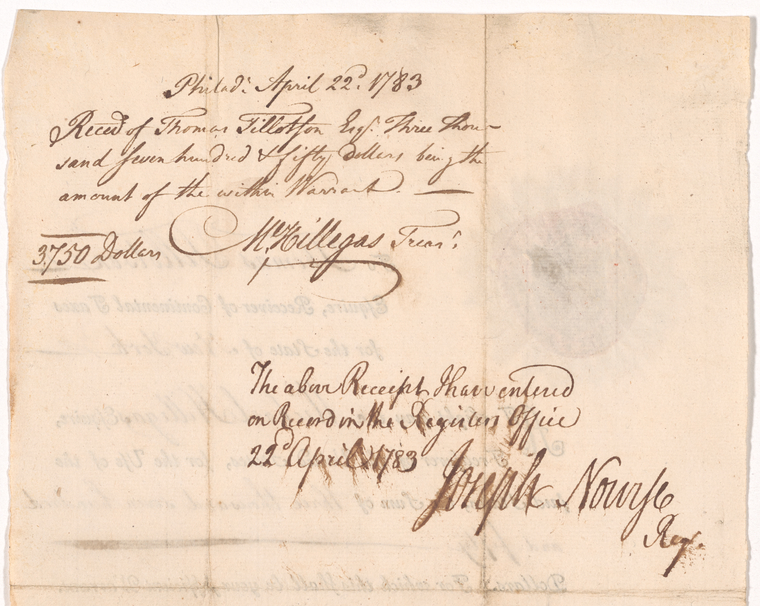 Philadᵃ. April 22ᵈ. 1783
Receed of Thomas Tillotson Esqʳ. Three thou-
sand seven hundred & fifty Dollars being the
amount of the within Warrant.
3.750 Dollars M. Hillegas Treasʳ.
The above Receipt I have entered
on Record in the Registers Office
22ᵈ April 1783
Joseph Nourse
Regʳ.